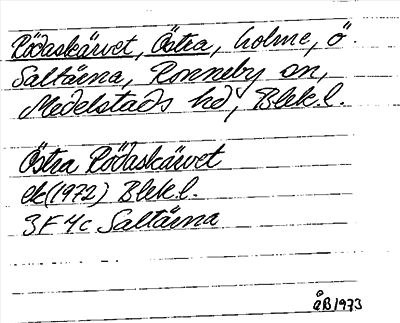 Rödaskärvet, Östra, holme, ö.
Saltärna, Ronneby sn,
Medelstads hd, Blek.l.
Östra Rödaskärvet
ek (1972) Blek.l.
3F 4c Saltärna
ÅB 1973